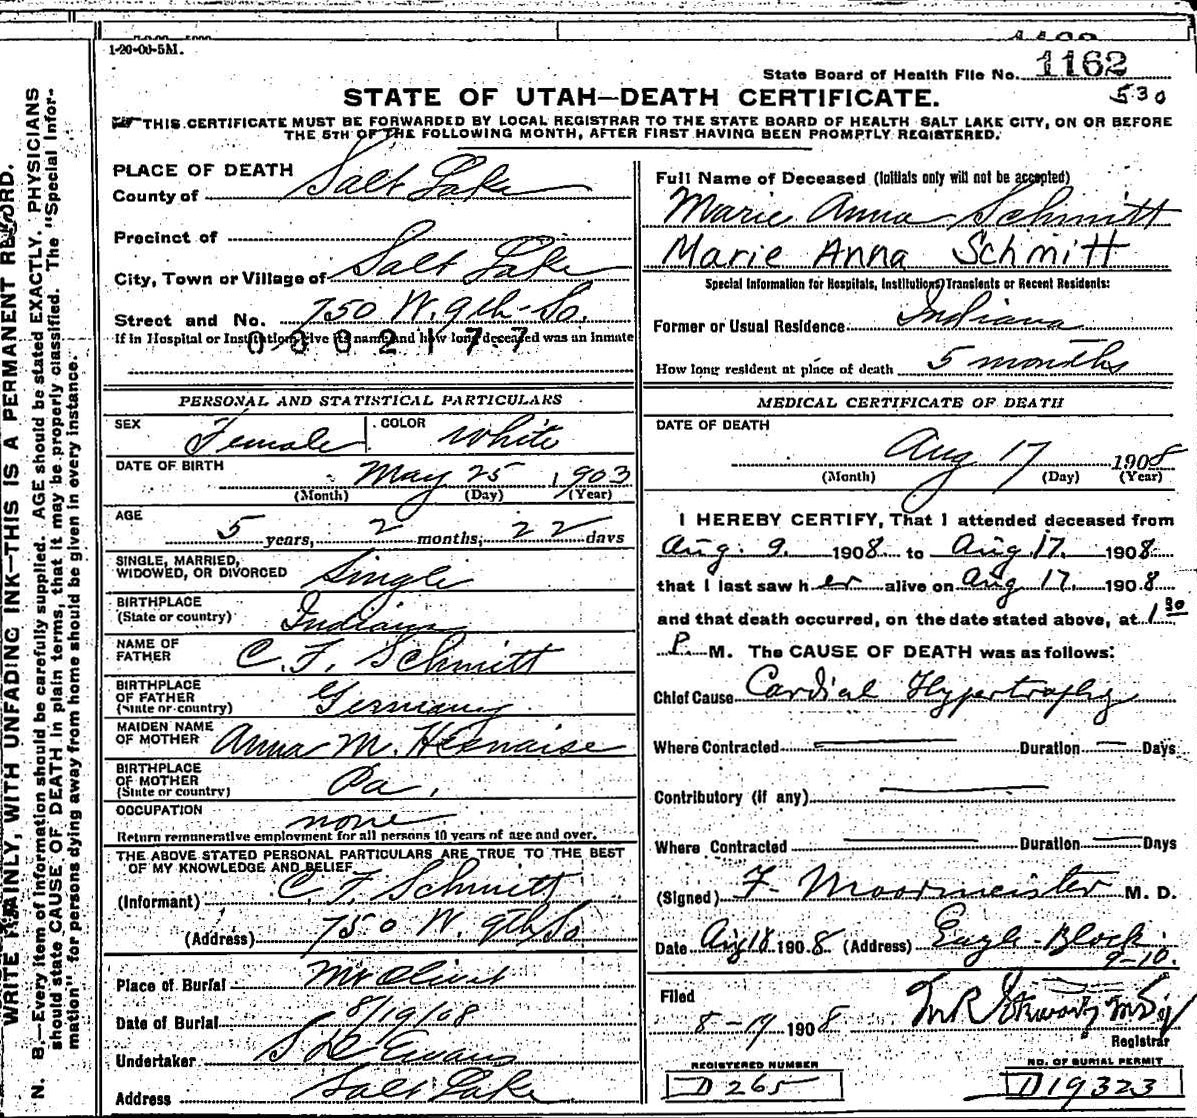 1-20-08-5M.
State Board of Health File No. 1162
530
STATE OF UTAH—DEATH CERTIFICATE.
THIS CERTIFICATE MUST BE FORWARDED BY LOCAL REGISTRAR TO THE STATE BOARD OF HEALTH SALT LAKE CITY, ON OR BEFORE
THE 5TH OF THE FOLLOWING MONTH, AFTER FIRST HAVING BEEN PROMPTLY REGISTERED.
WRITE PLAINLY, WITH UNFADING INK—THIS IS A PERMANENT RECORD.
N. B.—Every item of information should be carefully supplied. AGE should be stated EXACTLY. PHYSICIANS
should state CAUSE OF DEATH in plain terms, that it may be properly classified. The "Special Infor-
mation" for persons dying away from home should be given in every instance.
PLACE OF DEATH
County of Salt Lake
Precinct of
City, Town or Village of Salt Lake
Street and No. 750 W. 9th So.
If in Hospital or Institution, give its name and how long deceased was an inmate
0002177
PERSONAL AND STATISTICAL PARTICULARS
SEX Female COLOR White
DATE OF BIRTH May 25 1903
(Month) (Day) (Year)
AGE 5 years, 2 months, 22 days
SINGLE, MARRIED,
WIDOWED, OR DIVORCED Single
BIRTHPLACE
(State or country) Indiana
NAME OF
FATHER C. F. Schmitt
BIRTHPLACE
OF FATHER
(State or country) Germany
MAIDEN NAME
OF MOTHER Anna M.
BIRTHPLACE
OF MOTHER
(State or country) Pa.
OCCUPATION none
Return remunerative employment for all persons 10 years of age and over.
THE ABOVE STATED PERSONAL PARTICULARS ARE TRUE TO THE BEST
OF MY KNOWLEDGE AND BELIEF
(Informant) C. F. Schmitt
(Address) 750 W. 9th So
Place of Burial Mt Olivet
Date of Burial 8/19/08
Undertaker S D Evans
Address Salt Lake
Full Name of Deceased (Initials only will not be accepted)
Marie Anna Schmitt
Marie Anna Schmitt
Special Information for Hospitals, Institutions, Transients or Recent Residents:
Former or Usual Residence Indiana
How long resident at place of death 5 months
MEDICAL CERTIFICATE OF DEATH
DATE OF DEATH
Aug 17 1908
(Month) (Day) (Year)
I HEREBY CERTIFY, That I attended deceased from
Aug. 9. 1908 to Aug 17. 1908
that I last saw her alive on Aug 17. 1908
and that death occurred, on the date stated above, at 1 30
P. M. The CAUSE OF DEATH was as follows:
Chief Cause Cardial Hypertrophy
Where Contracted — Duration — Days
Contributory (if any) —
Where Contracted — Duration — Days
(Signed) F. Moormeister M. D.
Date Aug 18 1908 (Address) Eagle Block
9-10.
Filed
8-19 1908
Registrar
REGISTERED NUMBER
D265
NO. OF BURIAL PERMIT
D19323